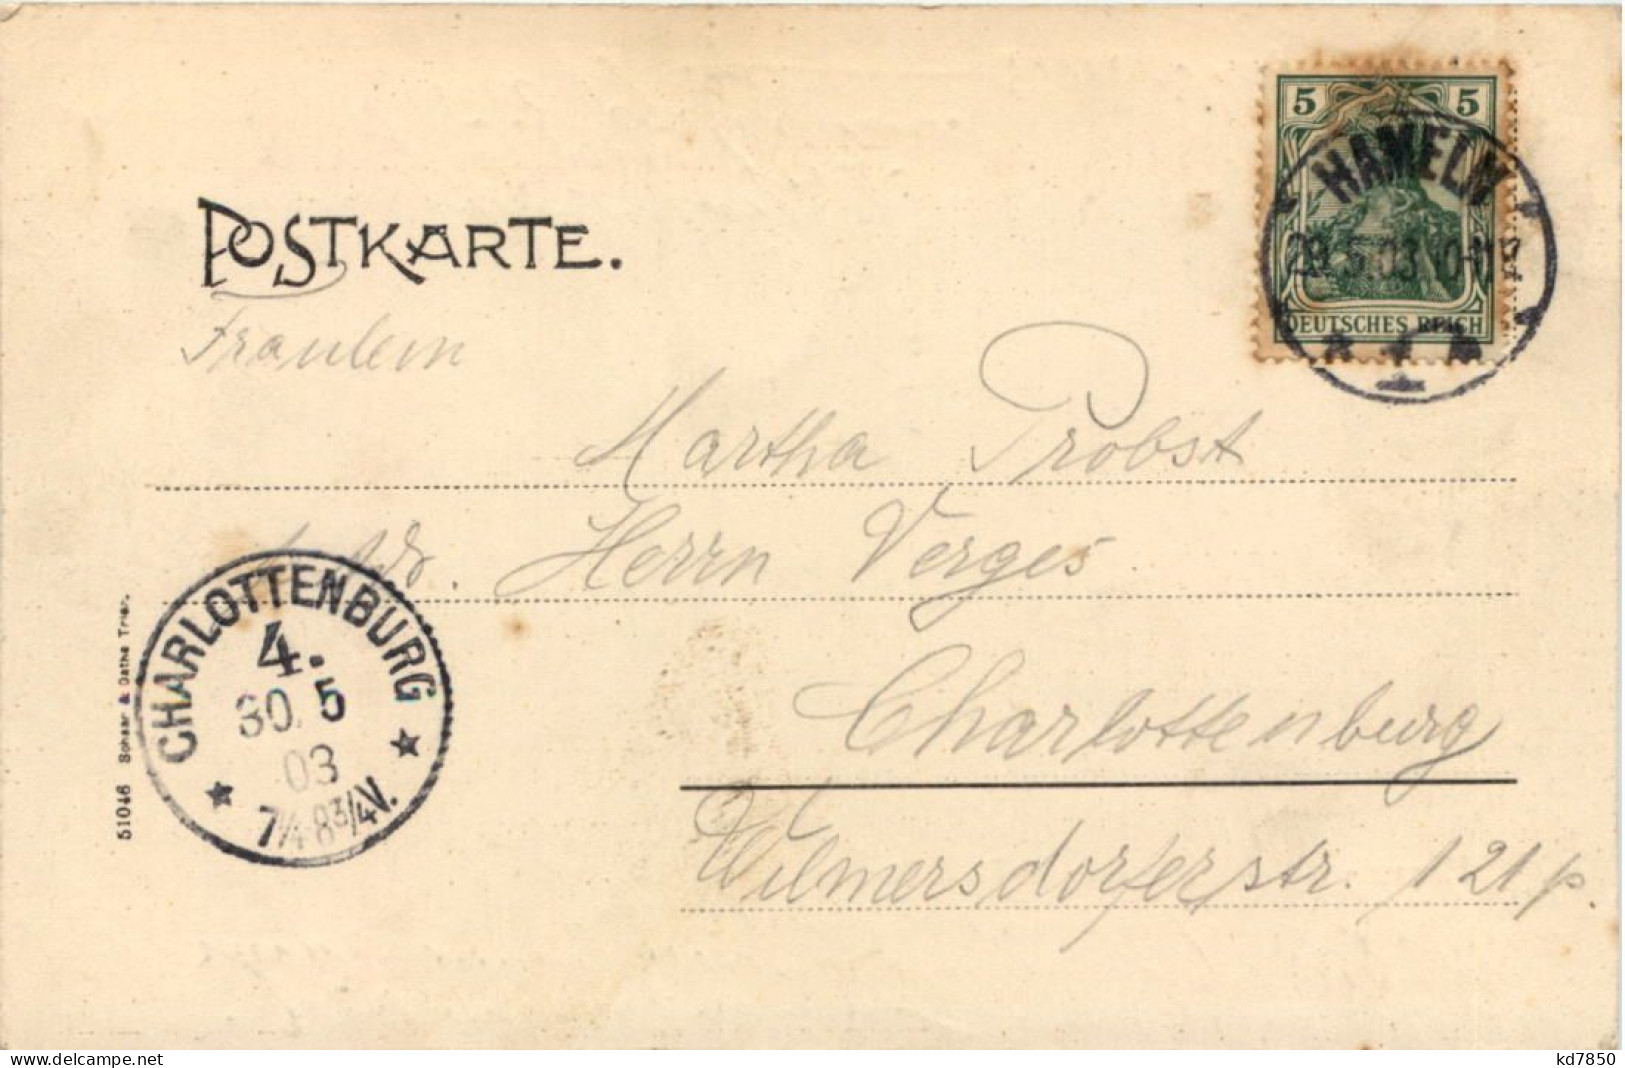 POSTKARTE.
5 5
DEUTSCHES REICH
HAMELN
29.5.03.10-11
Fräulein
Martha Probst
Herrn Verges
Charlottenburg
Wilmersdorferstr. 121 p.
CHARLOTTENBURG
4.
30.5
03
7¼-8¾V.
51046 Schaar & Dathe Trier.
www.delcampe.net
kd7850